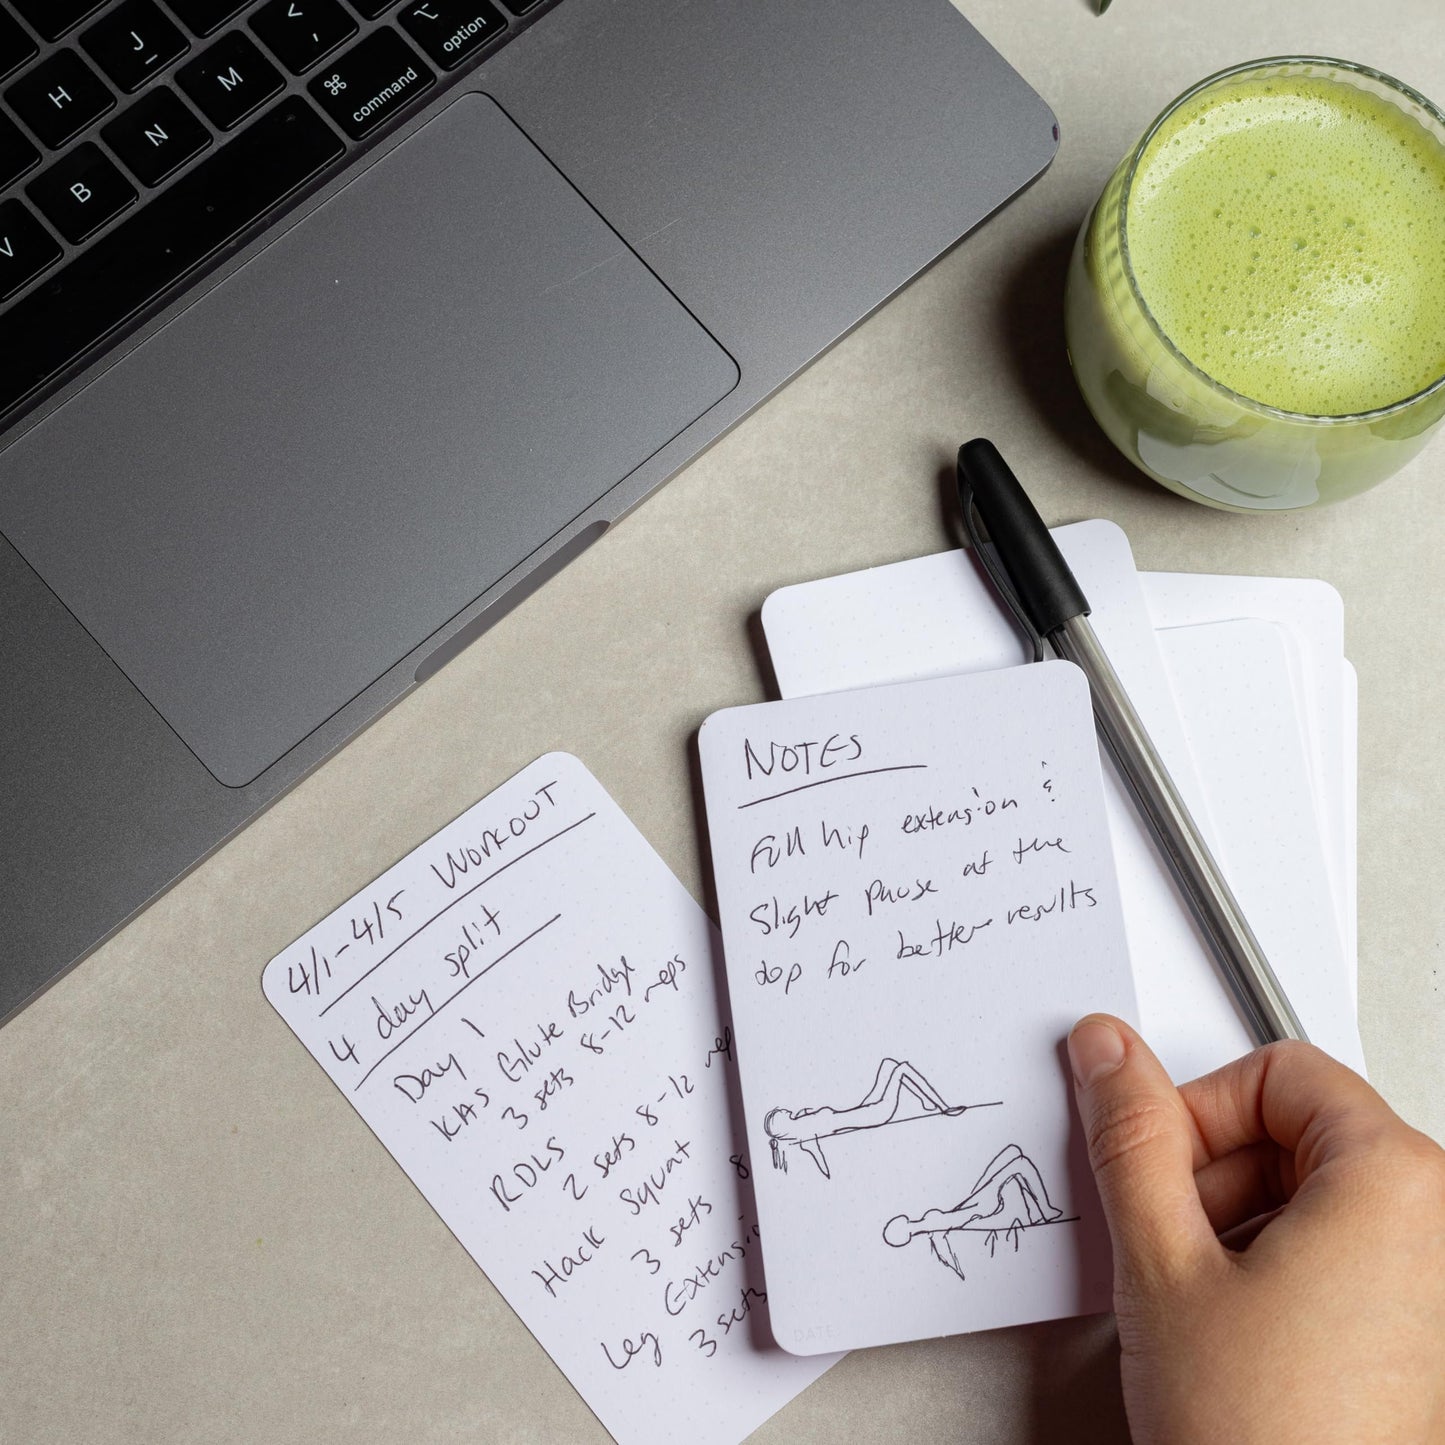 J
H
M
N
B
V
<
,
⌘
command
⌥
option
4/1-4/5 WORKOUT
4 day split
Day 1
KAS Glute Bridge
3 sets 8-12 reps
RDLS
2 sets 8-12 rep
Hack Squat
3 sets 8
Leg Extensio
3 sets
NOTES
Full hip extension &
Slight pause at the
top for better results
DATE: